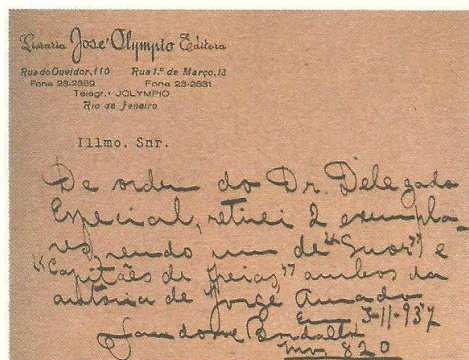 Livraria José Olympio Editora
Rua do Ouvidor, 110 Rua 1.º de Março, 13
Fone 23-2389 Fone 23-2631
Telegr.: JOLYMPIO
Rio de Janeiro
Illmo. Snr.
De ordem do Dr. Delegado
Especial, retirei 2 exempla-
res, sendo um de "Suor" e
"Capitães de Areias" ambos da
autoria de Jorge Amado
Em 3-11-937
820